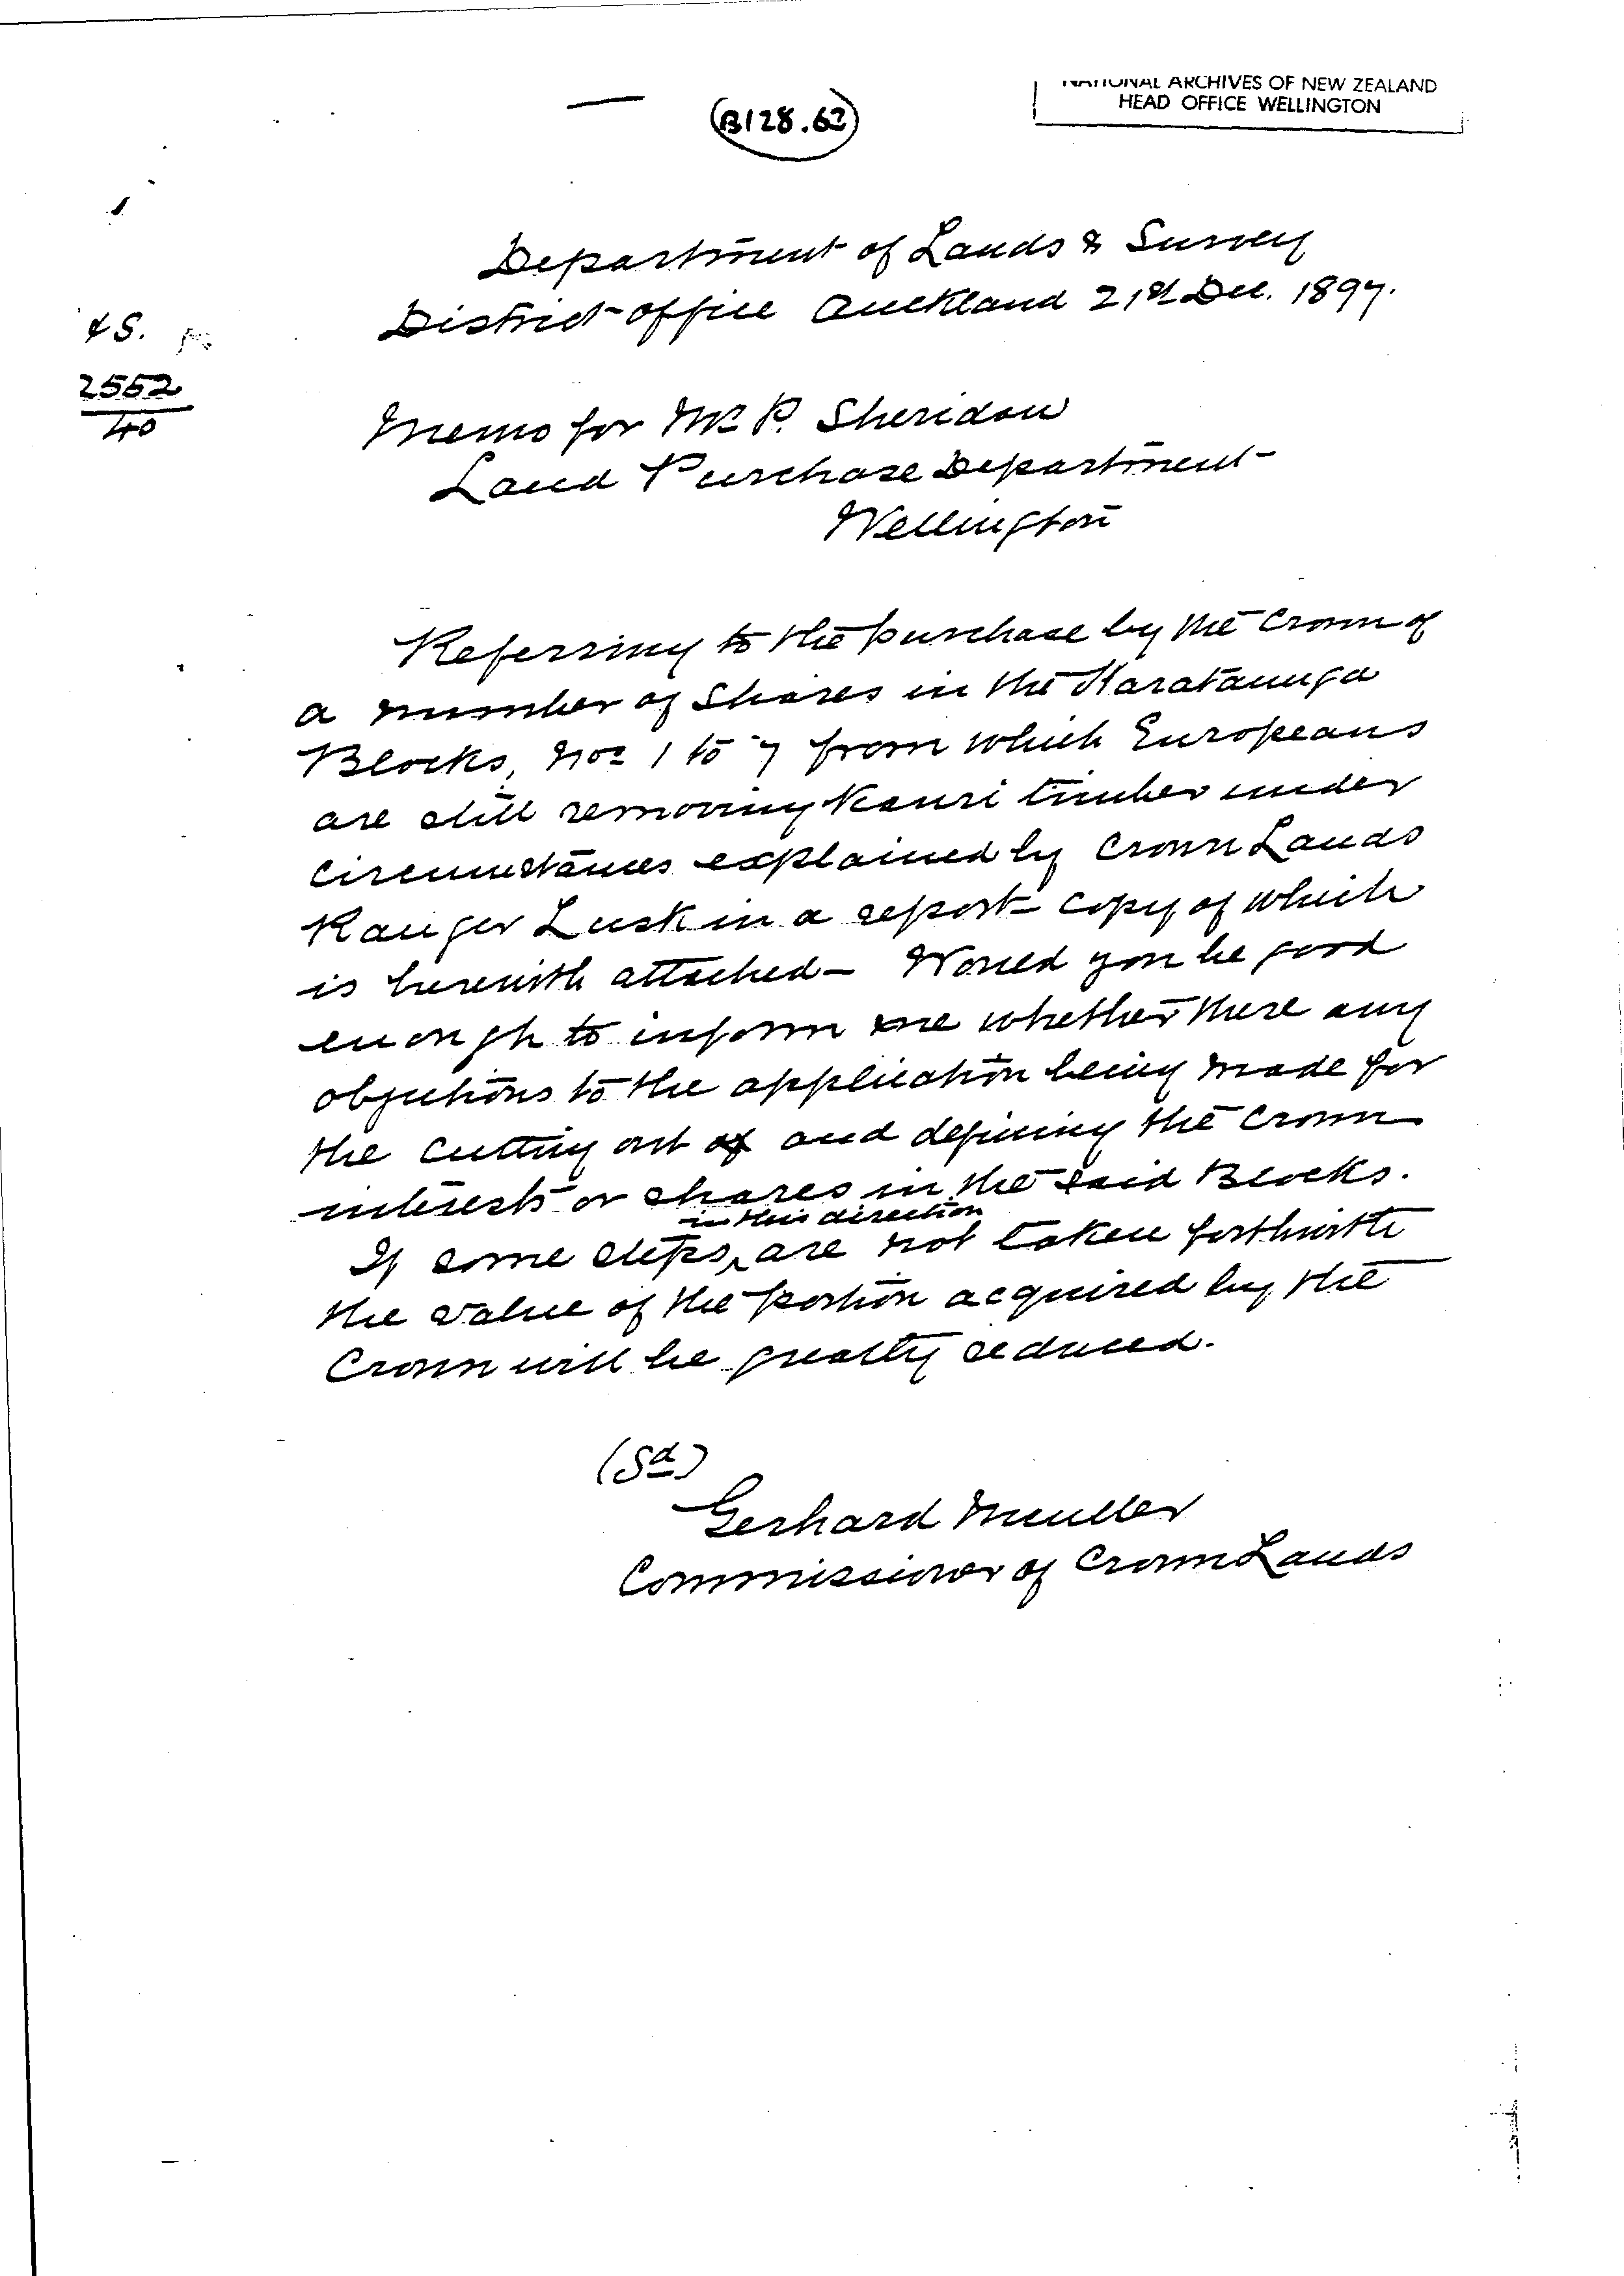 NATIONAL ARCHIVES OF NEW ZEALAND
HEAD OFFICE WELLINGTON
(B128.62)
& S.
2552
40
Department of Lands & Survey
District office Auckland 21st Dec. 1897.
Memo for Mr P. Sheridan
Land Purchase Department
Wellington
Referring to the purchase by the Crown of
a number of Shares in the Harataunga
Blocks, Nos 1 to 7 from which Europeans
are still removing Kauri timber under
circumstances explained by Crown Lands
Ranger Lusk in a report copy of which
is herewith attached— Would you be good
enough to inform me whether there any
objections to the application being made for
the cutting out of and defining the Crown
interests or shares in the said Blocks.
If some steps in this direction are not taken forthwith
the value of the portion acquired by the
Crown will be greatly reduced.
(Sd)
Gerhard Mueller
Commissioner of Crown Lands